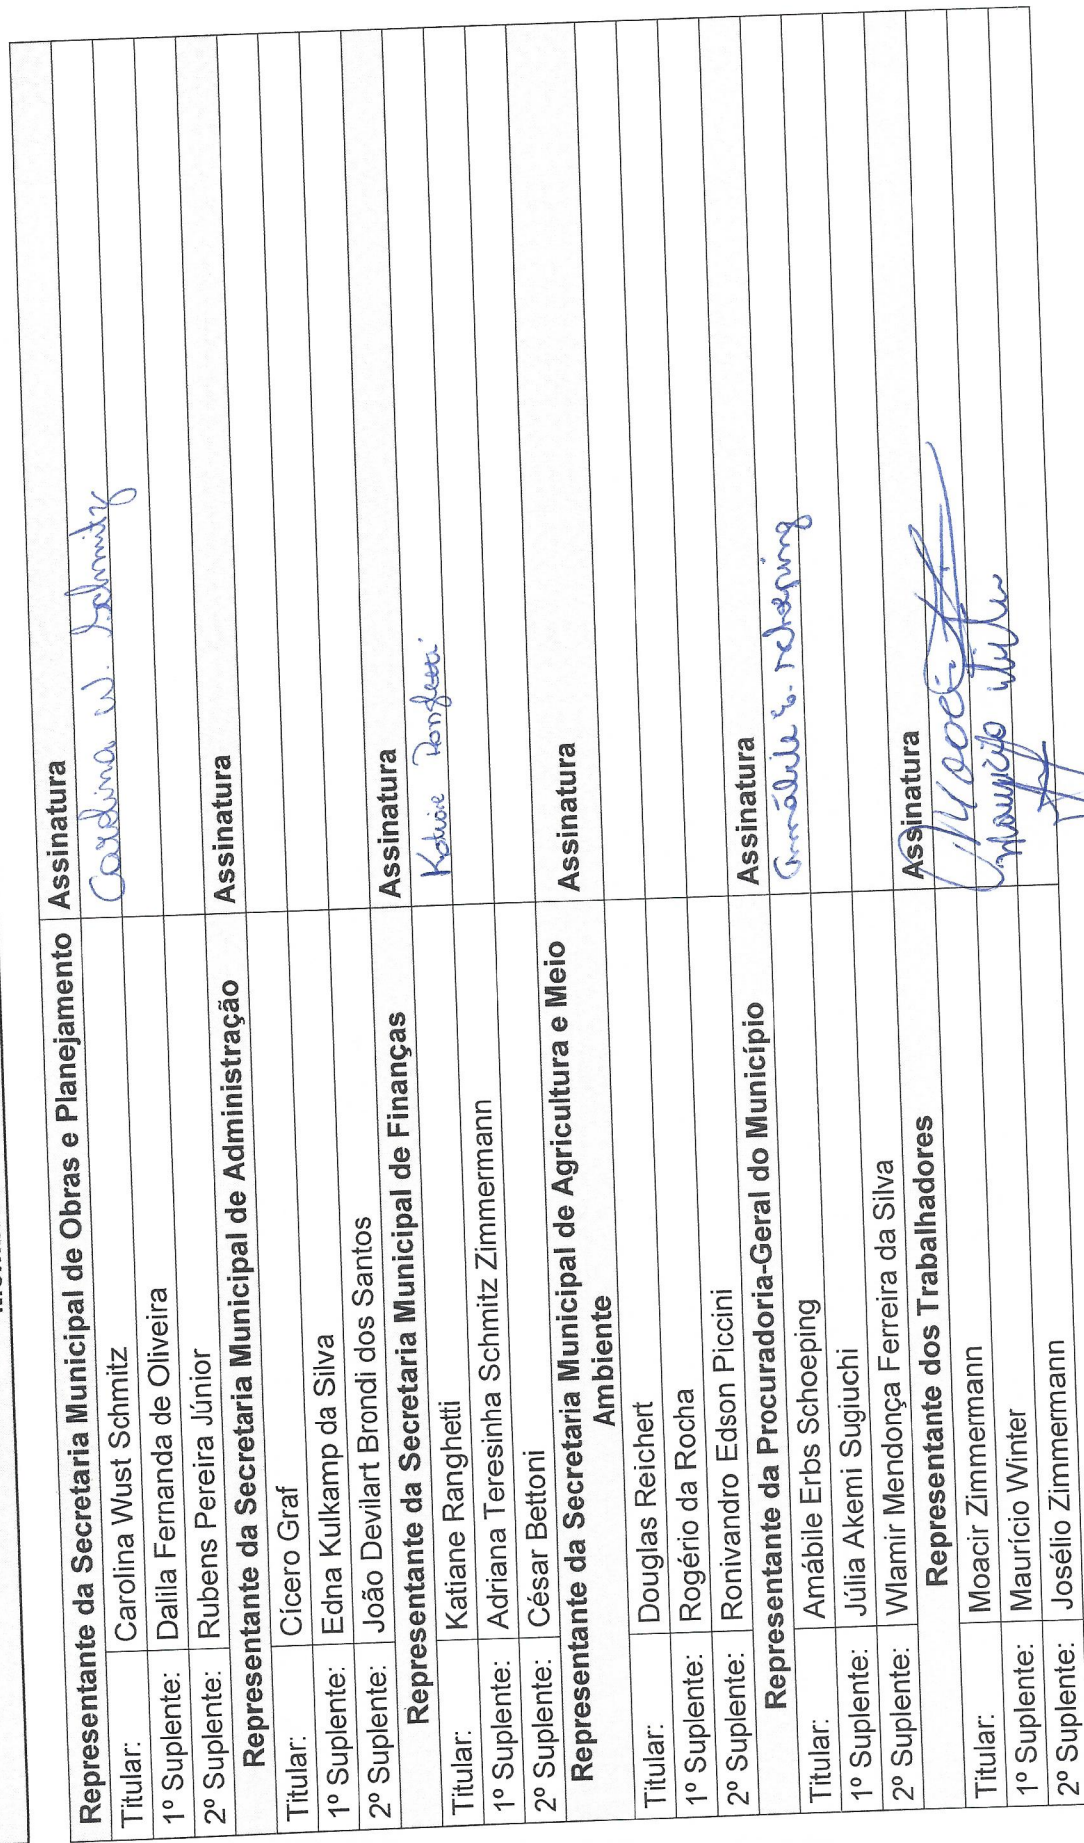 Representante da Secretaria Municipal de Obras e Planejamento Assinatura
Titular: Carolina Wust Schmitz Carolina W. Schmitz
1º Suplente: Dalila Fernanda de Oliveira
2º Suplente: Rubens Pereira Júnior
Representante da Secretaria Municipal de Administração Assinatura
Titular: Cícero Graf
1º Suplente: Edna Kulkamp da Silva
2º Suplente: João Devilart Brondi dos Santos
Representante da Secretaria Municipal de Finanças Assinatura
Titular: Katiane Ranghetti Katiane Ranghetti
1º Suplente: Adriana Teresinha Schmitz Zimmermann
2º Suplente: César Bettoni
Representante da Secretaria Municipal de Agricultura e Meio Assinatura
Ambiente
Titular: Douglas Reichert
1º Suplente: Rogério da Rocha
2º Suplente: Ronivandro Edson Piccini
Representante da Procuradoria-Geral do Município Assinatura
Titular: Amábile Erbs Schoeping Amábile E. Schoeping
1º Suplente: Júlia Akemi Sugiuchi
2º Suplente: Wlamir Mendonça Ferreira da Silva
Representante dos Trabalhadores Assinatura
Titular: Moacir Zimmermann Moacir
1º Suplente: Maurício Winter Maurício Winter
2º Suplente: Josélio Zimmermann